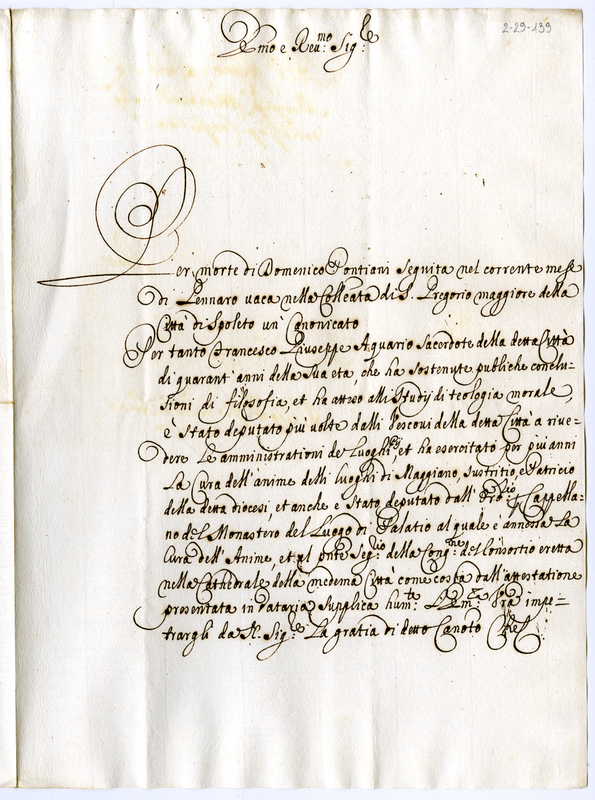 2-29-139
Emo e Reu.mo Sig.le
Per morte di Domenico Pontiani seguita nel corrente mese
di Gennaro uaca nella Colleata di S. Gregorio maggiore della
Città di Spoleto un Canonicato
Per tanto Francesco Giuseppe Aquario Sacerdote della detta Città
di quarant'anni della sua età, che ha sostenute publiche conclu-
sioni di filosofia, et ha atteso alli studij di teologia morale,
è stato deputato più uolte dalli Vescoui della detta Città a riue-
dere le amministrationi de Luoghi et ha esercitato per più anni
La Cura dell'anime delli luoghi di Maggiano, Sustritio, e Patricio
della detta diocesi, et anche è stato deputato dall' Ord.rio p Cappella-
no del Monastero del Luogo di Palatio al quale è annessa La
Cura dell'Anime, et al pnte Seg.rio della Cong.ne del Consortio eretta
nella Cathedrale della medema Città come costa dall'attestatione
presentata in Dataria supplica hum.te Em.za Vra impe-
trargli da N. Sig.re La gratia di detto Canoto